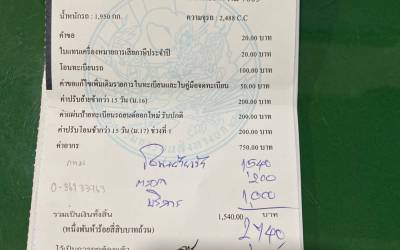 น้ำหนักรถ : 1,950 กก. ความจุรถ : 2,488 C.C
ค่าขอ 20.00 บาท
ใบแทนเครื่องหมายการเสียภาษีประจำปี 20.00 บาท
โอนทะเบียนรถ 100.00 บาท
ค่าขอแก้ไขเพิ่มเติมรายการในทะเบียนและใบคู่มือจดทะเบียน 50.00 บาท
ค่าปรับย้ายช้ากว่า 15 วัน (ม.16) 200.00 บาท
ค่าแผ่นป้ายทะเบียนรถยนต์ออกใหม่ รับปกติ 200.00 บาท
ค่าปรับโอนช้ากว่า 15 วัน (ม.17) ช่วงที่ 1 200.00 บาท
ค่าอากร 750.00 บาท
1,540
ตรอ 200
บริการ 1,000
รวมเป็นเงินทั้งสิ้น 1,540.00 บาท
(หนึ่งพันห้าร้อยสี่สิบบาทถ้วน) 2740